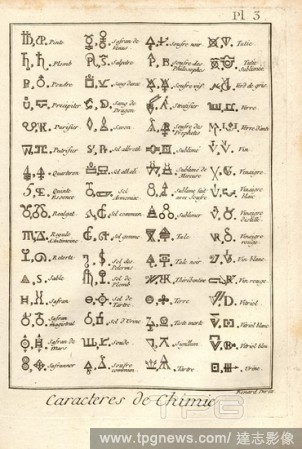 Pl 3.
Poste Safran de Venus Soufre noir Tutie
Plomb Salpetre Soufre des Philosophes Tutie Sublimée
Poudre Sang dume Soufre vif Verd de gris
Precipiter Sang de Dragon Stratifier Verre
Purifier Savon Soufre des Prophetes
Putrifier Sel alkali Vin
Quarteron Sel alkali Sublimé de Mercure Vinaigre
Quinte Essence Sel Armoniac Sublimé fait avec Soufre Vinaigre blanc
Realgal Sel commun Sublimer Vinaigre distillé
Regule d'Antimoine Sel gemme Talc Vinaigre rouge
Retorte Sel des Pelerins Talc noir Vin blanc
Sable Sel de Plomb Thérébentine Vin rouge
Safran Sel de Tartre Terre Vitriol
Safran magistral Sel d'Urine Teste morte Vitriol blanc
Safran de Mars Soude Sigillum Vitriol bleu
Safranner Soufre commun Tartre Urine
Benard Direx.
Caracteres de Chimie
TPG
www.tpgnews.com/達志影像